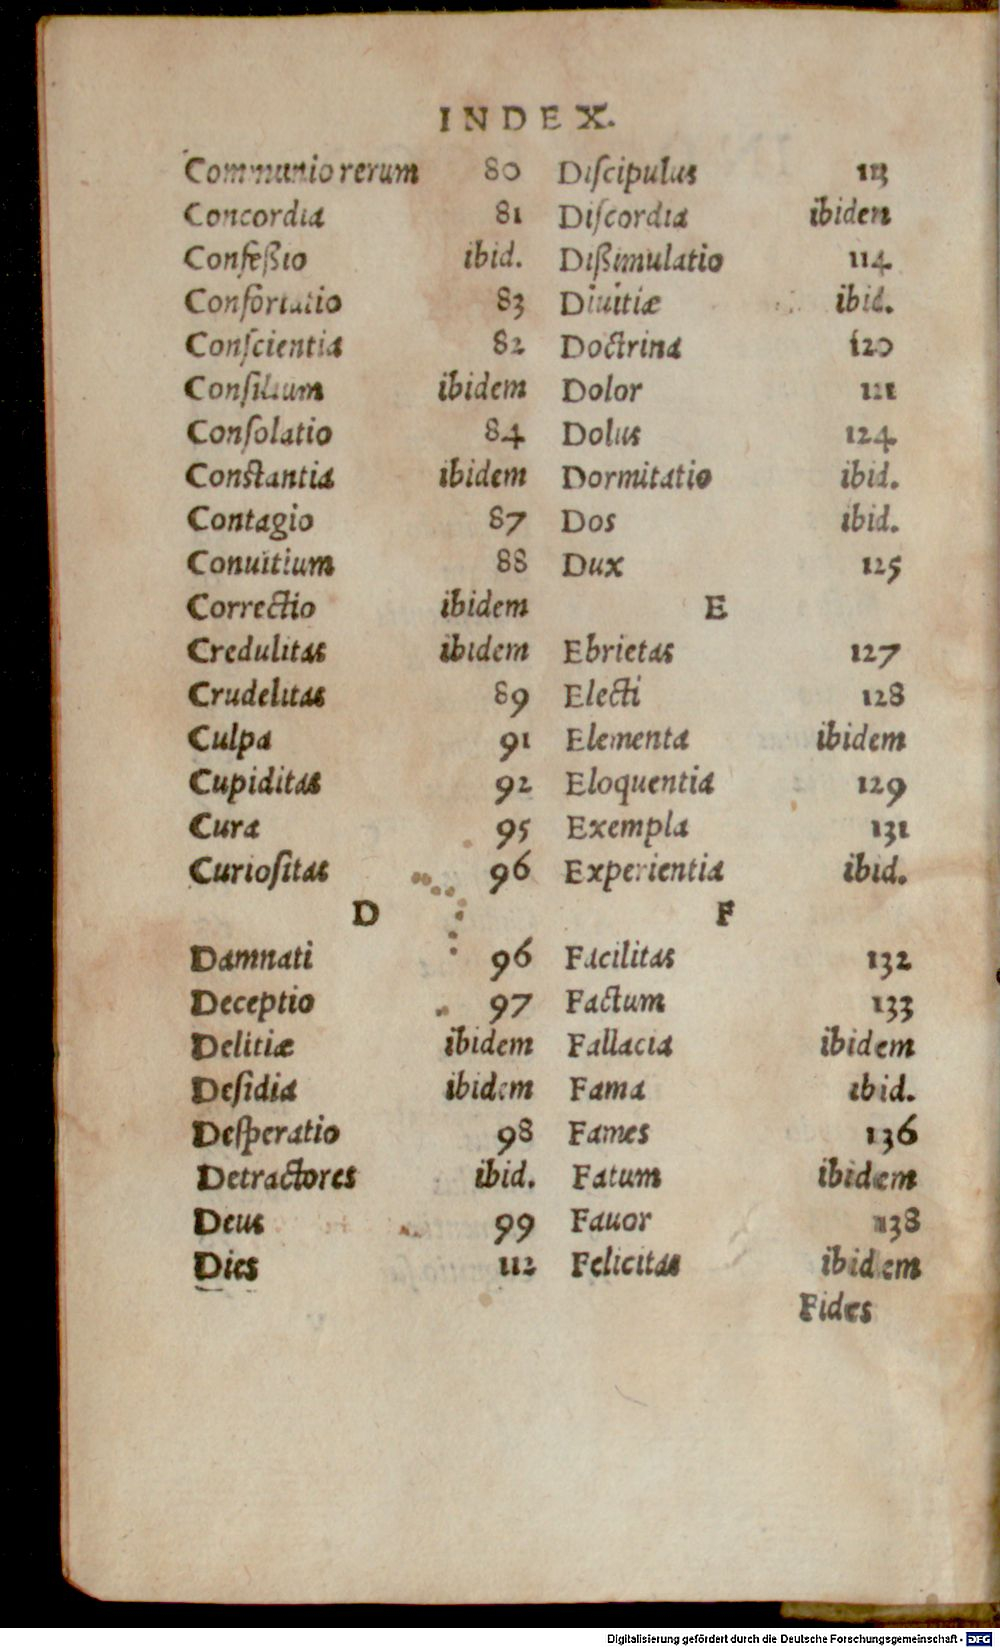 INDEX.
Communio rerum 80
Concordia 81
Confeßio ibid.
Confortatio 83
Conſcientia 82
Conſilium ibidem
Conſolatio 84
Constantia ibidem
Contagio 87
Conuitium 88
Correctio ibidem
Credulitas ibidem
Crudelitas 89
Culpa 91
Cupiditas 92
Cura 95
Curioſitas 96
D
Damnati 96
Deceptio 97
Delitiæ ibidem
Deſidia ibidem
Deſperatio 98
Detractores ibid.
Deus 99
Dies 112
Diſcipulus 113
Diſcordia ibidem
Dißimulatio 114
Diuitiæ ibid.
Doctrina 120
Dolor 121
Dolus 124
Dormitatio ibid.
Dos ibid.
Dux 125
E
Ebrietas 127
Electi 128
Elementa ibidem
Eloquentia 129
Exempla 131
Experientia ibid.
F
Facilitas 132
Factum 133
Fallacia ibidem
Fama ibid.
Fames 136
Fatum ibidem
Fauor 138
Felicitas ibidem
Fides
Digitalisierung gefördert durch die Deutsche Forschungsgemeinschaft - DFG